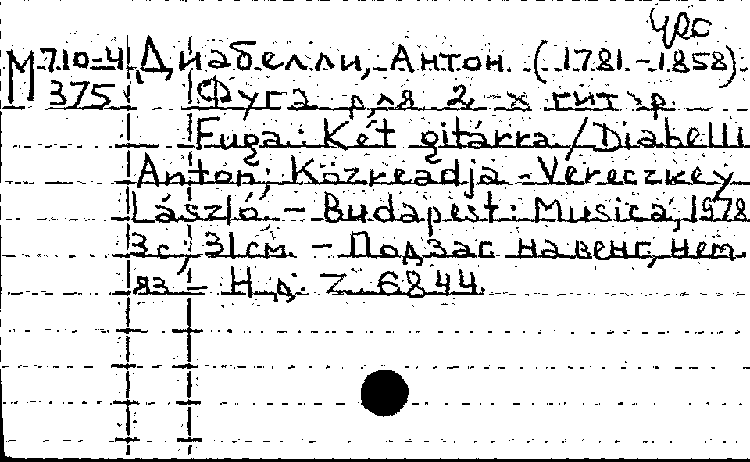 М 710-4 Диабелли, Антон. (1781-1858).
375 Фуга для 2-х гитар
Fuga: Két gitárra / Diabelli
Anton; Közreadja - Vereczkey
László. - Budapest: Musica, 1978
3с; 31см. - Подзаг на венг, нем
яз - Н.д. Z. 6844.